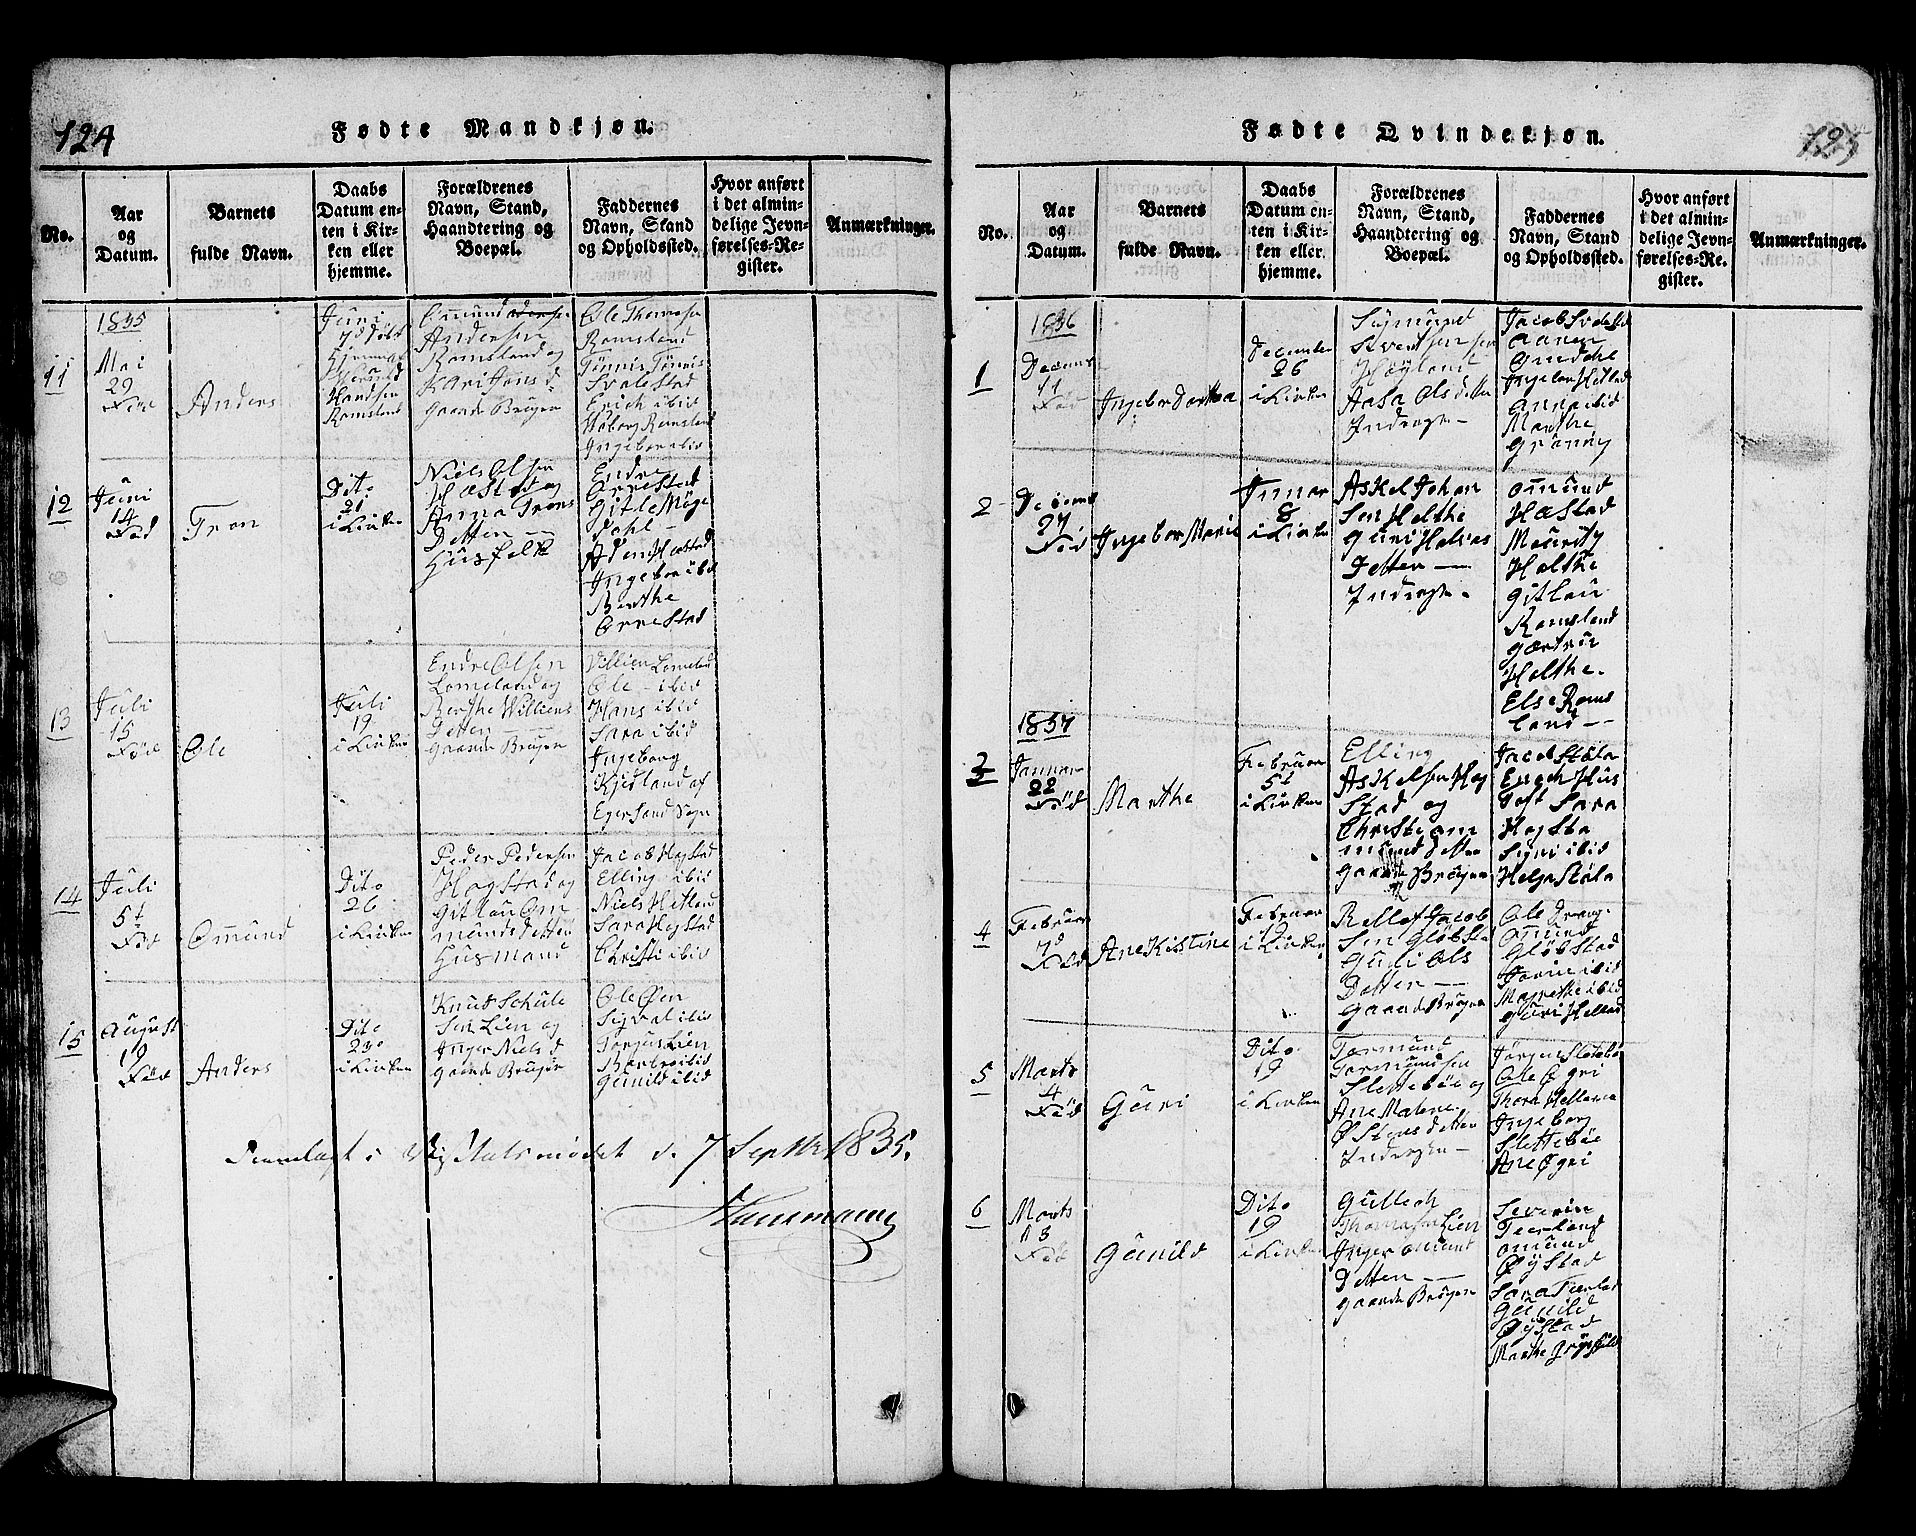 124
Fødte Mandkjøn.
No.
Aar
og
Datum.
Barnets
fulde Navn.
Daabs
Datum en-
ten i Kir-
ken eller
hjemme.
Forældrenes
Navn, Stand,
Haandtering og
Boepæl.
Faddernes
Navn, Stand
og Opholdssted.
Hvor anført
i det almin-
delige Jevn-
førelses-Re-
gister.
Anmærkninger.
1835
11
Mai
29
Fød
Anders
Juni
7d Døbt
Hjemme
Handsen
Romsland
Omund
Andersen
Romsland og
Kari Jons d
Gaarde Brugen
Ole Thomesen
Romsland
Tønnis Tønnis
Svalestad
Erich ibid
Romsland
Ingebor ibid
12
Juni
14
Fød
Tron
Dito
21
i Kirken
Niels Olsen
Hæstad og
Anna Trons
Detten
Husfolk
Endre
Orrestad
Gitle Møge
dahl
Aden Hæstad
Ingebor ibid
Berthe
Orrestad
13
Juli
15
Fød
Ole
Juli
19
i Kirken
Endre Olsen
Lomeland og
Berthe Williens
Detten
Gaarde Brugen
Villien Lomeland
Ole - ibid
Hans ibid
Sara ibid
Ingeborg
Kjedland af
Egersund Sogn
14
Juli
5t
Fød
Omund
Dito
26
i Kirken
Peder Pedersen
Hogstad og
Gitlau Om
munds Detten
Husmand
Jacob Hogstad
Elling ibid
Niels Hetland
Sara Hogstad
Christi ibid
15
August
19
Fød
Anders
Dito
23
i Kirken
Knud Schule
Sen Lien og
Inger Niels d
Gaarde Brugen
Ole Øen
Sigval ibid
Torgus Lien
Barbro ibid
Gunild ibid
Fremlagt i d. 7 Septbr 1835.
Hanemann
125
Fødte Qvindekjøn.
No.
Aar
og
Datum.
Barnets
fulde Navn.
Daabs
Datum en-
ten i Kir-
ken eller
hjemme.
Forældrenes
Navn, Stand,
Haandtering og
Boepæl.
Faddernes
Navn, Stand
og Opholdssted.
Hvor anført
i det almin-
delige Jevn-
førelses-Re-
gister.
Anmærkninger.
1836
1
Decemb
11
Fød
Ingebor Dorthea
December
26
i Kirken
Sigmund
Siversen
Høyland
Aasa Ols detter
Inderste
Jacob Svalestad
Ingebor Hetland
Anna ibid
Marthe
Grønning
2
Decemb
27
Fød
Ingebor Marie
Januar
8
i Kirken
Askel Johan
Sen Holthe
Guri Halvors
Detten
Inderste
Omund
Hæstad
Mauritz
Holthe
Gitlau
Romsland
Gærtrur
Holthe.
Else Roms
land
1837
3
Januar
22
Fød
Marthe
Februar
5t
i Kirken
Elling
Askelsen Hog
Stad og
Christi om
mund detten
Gaarde Brugen
Jacob Støle
Enoch Hus
Tost Sara
Hogsta
Signi ibid
Helje Støle
4
Februar
7d
Fød
Ane Kistine
Februar
19
i Kirken
Rellof Jacob
Sen Gløbsta
Guri Ols
Detten
Gaarde Brugen
Ole Drange
Omund
Gløbstad
Torin ibid
Marethe ibid
Guri Helland
5
Marts
4
Fød
Guri
Dito
19
i Kirken
Tormund
Tormundsen
Slettebøe og
Ane Malene
Ø Stens detten
Inderste
Jørgen Slettebø
Ole Øgri
Thora Helleren
Ingeborg
Slettebøe
Ane Øgri
6
Marts
13
Fød
Gunild
Dito
19
i Kirken
Gullech
Thomesen Lien
Inger Omunt
Detten
Gaarde Brugen
Severin
Teerland
Omund
Øystad
Sara Teerland
Gunild
Øystad
Marthe